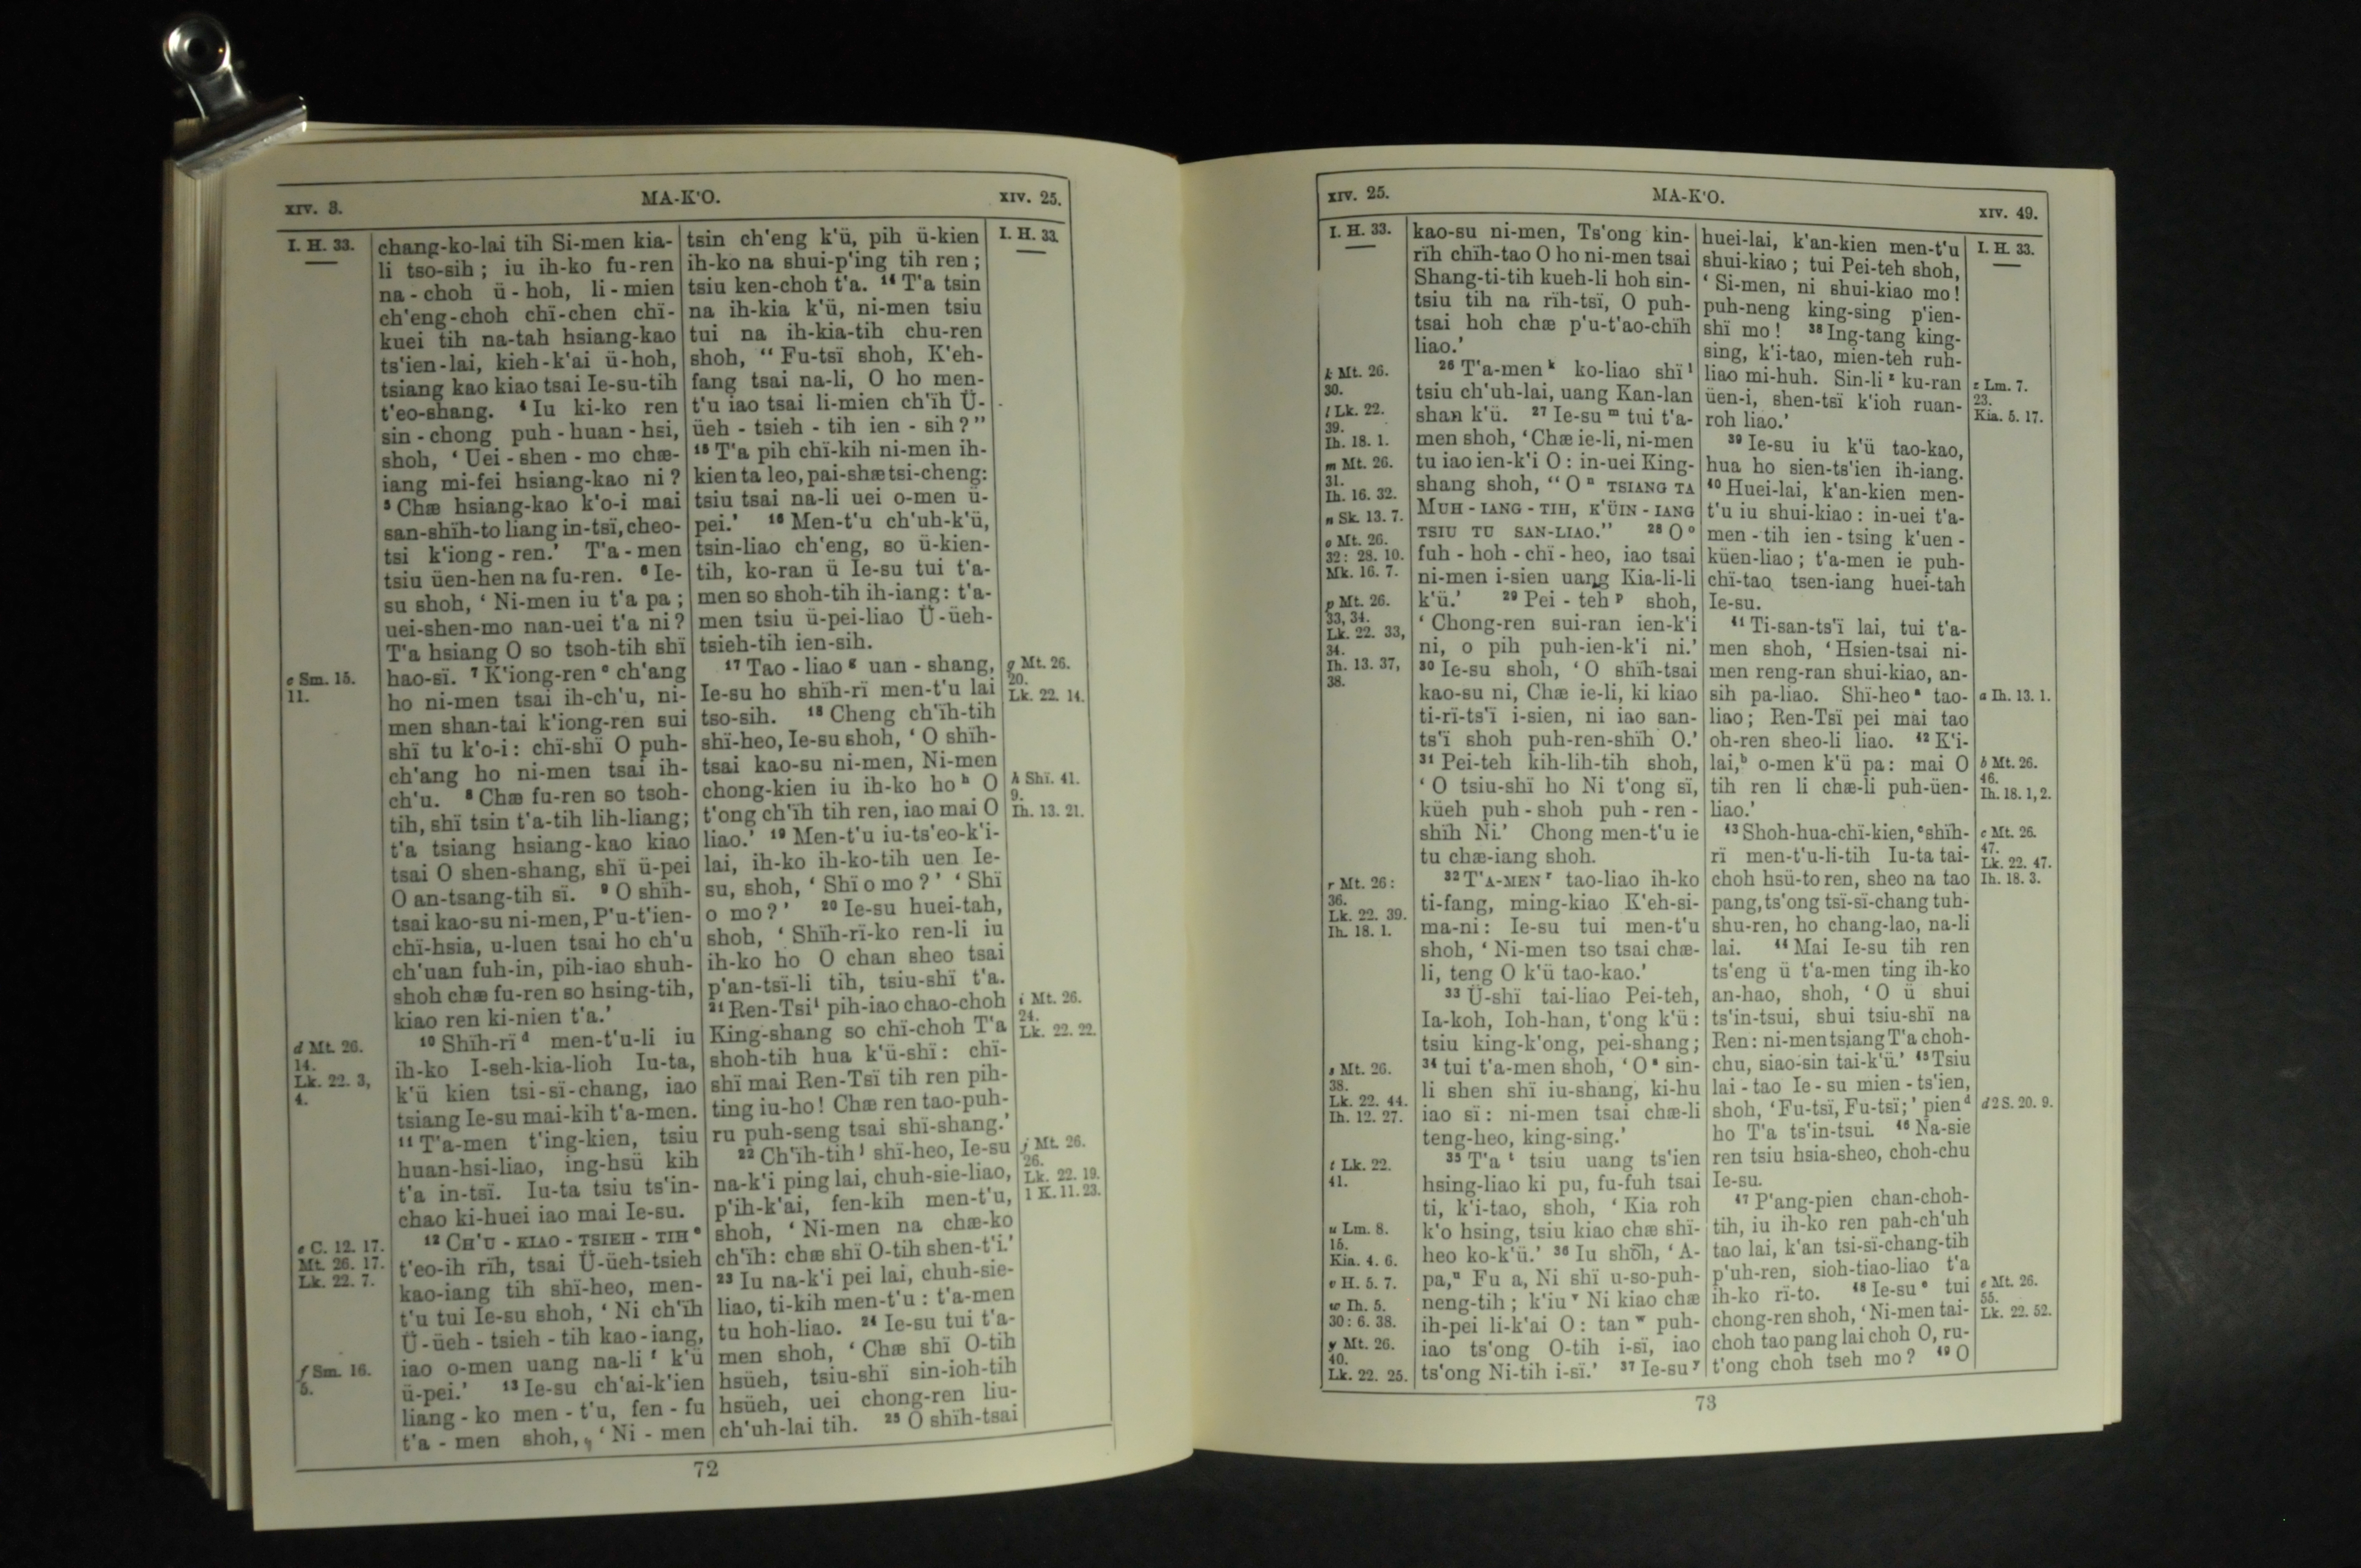 XIV. 3.
MA-K'O.
XIV. 25.
I. H. 33.
c Sm. 15.
11.
d Mt. 26.
14.
Lk. 22. 3,
4.
e C. 12. 17.
Mt. 26. 17.
Lk. 22. 7.
f Sm. 16.
5.
chang-ko-lai tih Si-men kia-
li tso-sih; iu ih-ko fu-ren
na-choh ü-hoh, li-mien
ch'eng-choh chï-chen chï-
kuei tih na-tah hsiang-kao
ts'ien-lai, kieh-k'ai ü-hoh,
tsiang kao kiao tsai Ie-su-tih
t'eo-shang. ⁴ Iu ki-ko ren
sin-chong puh-huan-hsi,
shoh, ‘ Uei-shen-mo chæ-
iang mi-fei hsiang-kao ni?
⁵ Chæ hsiang-kao k'o-i mai
san-shïh-to liang in-tsï, cheo-
tsi k'iong-ren.’ T'a-men
tsiu üen-hen na fu-ren. ⁶ Ie-
su shoh, ‘ Ni-men iu t'a pa;
uei-shen-mo nan-uei t'a ni?
T'a hsiang O so tsoh-tih shï
hao-sï. ⁷ K'iong-ren ᶜ ch'ang
ho ni-men tsai ih-ch'u, ni-
men shan-tai k'iong-ren sui
shï tu k'o-i: chï-shï O puh-
ch'ang ho ni-men tsai ih-
ch'u. ⁸ Chæ fu-ren so tsoh-
tih, shï tsin t'a-tih lih-liang;
t'a tsiang hsiang-kao kiao
tsai O shen-shang, shï ü-pei
O an-tsang-tih sï. ⁹ O shïh-
tsai kao-su ni-men, P'u-t'ien-
chï-hsia, u-luen tsai ho ch'u
ch'uan fuh-in, pih-iao shuh-
shoh chæ fu-ren so hsing-tih,
kiao ren ki-nien t'a.’
¹⁰ Shïh-rï ᵈ men-t'u-li iu
ih-ko I-seh-kia-lioh Iu-ta,
k'ü kien tsi-sï-chang, iao
tsiang Ie-su mai-kih t'a-men.
¹¹ T'a-men t'ing-kien, tsiu
huan-hsi-liao, ing-hsü kih
t'a in-tsï. Iu-ta tsiu ts'in-
chao ki-huei iao mai Ie-su.
¹² CH'U-KIAO-TSIEH-TIH ᵉ
t'eo-ih rïh, tsai Ü-üeh-tsieh
kao-iang tih shï-heo, men-
t'u tui Ie-su shoh, ‘ Ni ch'ïh
Ü-üeh-tsieh-tih kao-iang,
iao o-men uang na-li ᶠ k'ü
ü-pei.’ ¹³ Ie-su ch'ai-k'ien
liang-ko men-t'u, fen-fu
t'a-men shoh, ‘ Ni-men
tsin ch'eng k'ü, pih ü-kien
ih-ko na shui-p'ing tih ren;
tsiu ken-choh t'a. ¹⁴ T'a tsin
na ih-kia k'ü, ni-men tsiu
tui na ih-kia-tih chu-ren
shoh, “ Fu-tsï shoh, K'eh-
fang tsai na-li, O ho men-
t'u iao tsai li-mien ch'ïh Ü-
üeh-tsieh-tih ien-sih?”
¹⁵ T'a pih chï-kih ni-men ih-
kien ta leo, pai-shæ tsi-cheng:
tsiu tsai na-li uei o-men ü-
pei.’ ¹⁶ Men-t'u ch'uh-k'ü,
tsin-liao ch'eng, so ü-kien-
tih, ko-ran ü Ie-su tui t'a-
men so shoh-tih ih-iang: t'a-
men tsiu ü-pei-liao Ü-üeh-
tsieh-tih ien-sih.
¹⁷ Tao-liao ᵍ uan-shang,
Ie-su ho shïh-rï men-t'u lai
tso-sih. ¹⁸ Cheng ch'ïh-tih
shï-heo, Ie-su shoh, ‘ O shïh-
tsai kao-su ni-men, Ni-men
chong-kien iu ih-ko ho ʰ O
t'ong ch'ïh tih ren, iao mai O
liao.’ ¹⁹ Men-t'u iu-ts'eo-k'i-
lai, ih-ko ih-ko-tih uen Ie-
su, shoh, ‘ Shï o mo?’ ‘ Shï
o mo?’ ²⁰ Ie-su huei-tah,
shoh, ‘ Shïh-rï-ko ren-li iu
ih-ko ho O chan sheo tsai
p'an-tsï-li tih, tsiu-shï t'a.
²¹ Ren-Tsï ⁱ pih-iao chao-choh
King-shang so chï-choh T'a
shoh-tih hua k'ü-shï: chï-
shï mai Ren-Tsï tih ren pih-
ting iu-ho! Chæ ren tao-puh-
ru puh-seng tsai shï-shang.’
²² Ch'ïh-tih ʲ shï-heo, Ie-su
na-k'i ping lai, chuh-sie-liao,
p'ih-k'ai, fen-kih men-t'u,
shoh, ‘ Ni-men na chæ-ko
ch'ïh: chæ shï O-tih shen-t'i.’
²³ Iu na-k'i pei lai, chuh-sie-
liao, ti-kih men-t'u: t'a-men
tu hoh-liao. ²⁴ Ie-su tui t'a-
men shoh, ‘ Chæ shï O-tih
hsüeh, tsiu-shï sin-ioh-tih
hsüeh, uei chong-ren liu-
ch'uh-lai tih. ²⁵ O shïh-tsai
I. H. 33.
g Mt. 26.
20.
Lk. 22. 14.
h Shï. 41.
9.
Ih. 13. 21.
i Mt. 26.
24.
Lk. 22. 22.
j Mt. 26.
26.
Lk. 22. 19.
1 K. 11. 23.
72
XIV. 25.
MA-K'O.
XIV. 49.
I. H. 33.
k Mt. 26.
30.
l Lk. 22.
39.
Ih. 18. 1.
m Mt. 26.
31.
Ih. 16. 32.
n Sk. 13. 7.
o Mt. 26.
32: 28. 10.
Mk. 16. 7.
p Mt. 26.
33, 34.
Lk. 22. 33,
34.
Ih. 13. 37,
38.
r Mt. 26:
36.
Lk. 22. 39.
Ih. 18. 1.
s Mt. 26.
38.
Lk. 22. 44.
Ih. 12. 27.
t Lk. 22.
41.
u Lm. 8.
15.
Kia. 4. 6.
v H. 5. 7.
w Ih. 5.
30: 6. 38.
y Mt. 26.
40.
Lk. 22. 25.
kao-su ni-men, Ts'ong kin-
rïh chïh-tao O ho ni-men tsai
Shang-ti-tih kueh-li hoh sin-
tsiu tih na rïh-tsï, O puh-
tsai hoh chæ p'u-t'ao-chïh
liao.’
²⁶ T'a-men ᵏ ko-liao shï ˡ
tsiu ch'uh-lai, uang Kan-lan
shan k'ü. ²⁷ Ie-su ᵐ tui t'a-
men shoh, ‘ Chæ ie-li, ni-men
tu iao ien-k'i O: in-uei King-
shang shoh, “ O ⁿ TSIANG TA
MUH-IANG-TIH, K'ÜIN-IANG
TSIU TU SAN-LIAO.” ²⁸ O ᵒ
fuh-hoh-chï-heo, iao tsai
ni-men i-sien uang Kia-li-li
k'ü.’ ²⁹ Pei-teh ᵖ shoh,
‘ Chong-ren sui-ran ien-k'i
ni, o pih puh-ien-k'i ni.’
³⁰ Ie-su shoh, ‘ O shïh-tsai
kao-su ni, Chæ ie-li, ki kiao
ti-rï-ts'ï i-sien, ni iao san-
ts'ï shoh puh-ren-shïh O.’
³¹ Pei-teh kih-lih-tih shoh,
‘ O tsiu-shï ho Ni t'ong sï,
küeh puh-shoh puh-ren-
shïh Ni.’ Chong men-t'u ie
tu chæ-iang shoh.
³² T'A-MEN ʳ tao-liao ih-ko
ti-fang, ming-kiao K'eh-si-
ma-ni: Ie-su tui men-t'u
shoh, ‘ Ni-men tso tsai chæ-
li, teng O k'ü tao-kao.’
³³ Ü-shï tai-liao Pei-teh,
Ia-koh, Ioh-han, t'ong k'ü:
tsiu king-k'ong, pei-shang;
³⁴ tui t'a-men shoh, ‘ O ˢ sin-
li shen shï iu-shang, ki-hu
iao sï: ni-men tsai chæ-li
teng-heo, king-sing.’
³⁵ T'a ᵗ tsiu uang ts'ien
hsing-liao ki pu, fu-fuh tsai
ti, k'i-tao, shoh, ‘ Kia roh
k'o hsing, tsiu kiao chæ shï-
heo ko-k'ü.’ ³⁶ Iu shoh, ‘ A-
pa,ᵘ Fu a, Ni shï u-so-puh-
neng-tih; k'iu ᵛ Ni kiao chæ
ih-pei li-k'ai O: tan ʷ puh-
iao ts'ong O-tih i-sï, iao
ts'ong Ni-tih i-sï.’ ³⁷ Ie-su ʸ
huei-lai, k'an-kien men-t'u
shui-kiao; tui Pei-teh shoh,
‘ Si-men, ni shui-kiao mo!
puh-neng king-sing p'ien-
shï mo! ³⁸ Ing-tang king-
sing, k'i-tao, mien-teh ruh-
liao mi-huh. Sin-li ᶻ ku-ran
üen-i, shen-tsï k'ioh ruan-
roh liao.’
³⁹ Ie-su iu k'ü tao-kao,
hua ho sien-ts'ien ih-iang.
⁴⁰ Huei-lai, k'an-kien men-
t'u iu shui-kiao: in-uei t'a-
men-tih ien-tsing k'uen-
küen-liao; t'a-men ie puh-
chï-tao tsen-iang huei-tah
Ie-su.
⁴¹ Ti-san-ts'ï lai, tui t'a-
men shoh, ‘ Hsien-tsai ni-
men reng-ran shui-kiao, an-
sih pa-liao. Shï-heo ᵃ tao-
liao; Ren-Tsï pei mai tao
oh-ren sheo-li liao. ⁴² K'i-
lai,ᵇ o-men k'ü pa: mai O
tih ren li chæ-li puh-üen-
liao.’
⁴³ Shoh-hua-chï-kien, ᶜ shïh-
rï men-t'u-li-tih Iu-ta tai-
choh hsü-to ren, sheo na tao
pang, ts'ong tsï-sï-chang tuh-
shu-ren, ho chang-lao, na-li
lai. ⁴⁴ Mai Ie-su tih ren
ts'eng ü t'a-men ting ih-ko
an-hao, shoh, ‘ O ü shui
ts'in-tsui, shui tsiu-shï na
Ren: ni-men tsiang T'a choh-
chu, siao-sin tai-k'ü.’ ⁴⁵ Tsiu
lai-tao Ie-su mien-ts'ien,
shoh, ‘ Fu-tsï, Fu-tsï;’ pien ᵈ
ho T'a ts'in-tsui. ⁴⁶ Na-sie
ren tsiu hsia-sheo, choh-chu
Ie-su.
⁴⁷ P'ang-pien chan-choh-
tih, iu ih-ko ren pah-ch'uh
tao lai, k'an tsi-sï-chang-tih
p'uh-ren, sioh-tiao-liao t'a
ih-ko rï-to. ⁴⁸ Ie-su ᵉ tui
chong-ren shoh, ‘ Ni-men tai-
choh tao pang lai choh O, ru-
t'ong choh tseh mo? ⁴⁹ O
I. H. 33.
z Lm. 7.
23.
Kia. 5. 17.
a Ih. 13. 1.
b Mt. 26.
46.
Ih. 18. 1, 2.
c Mt. 26.
47.
Lk. 22. 47.
Ih. 18. 3.
d 2 S. 20. 9.
e Mt. 26.
55.
Lk. 22. 52.
73